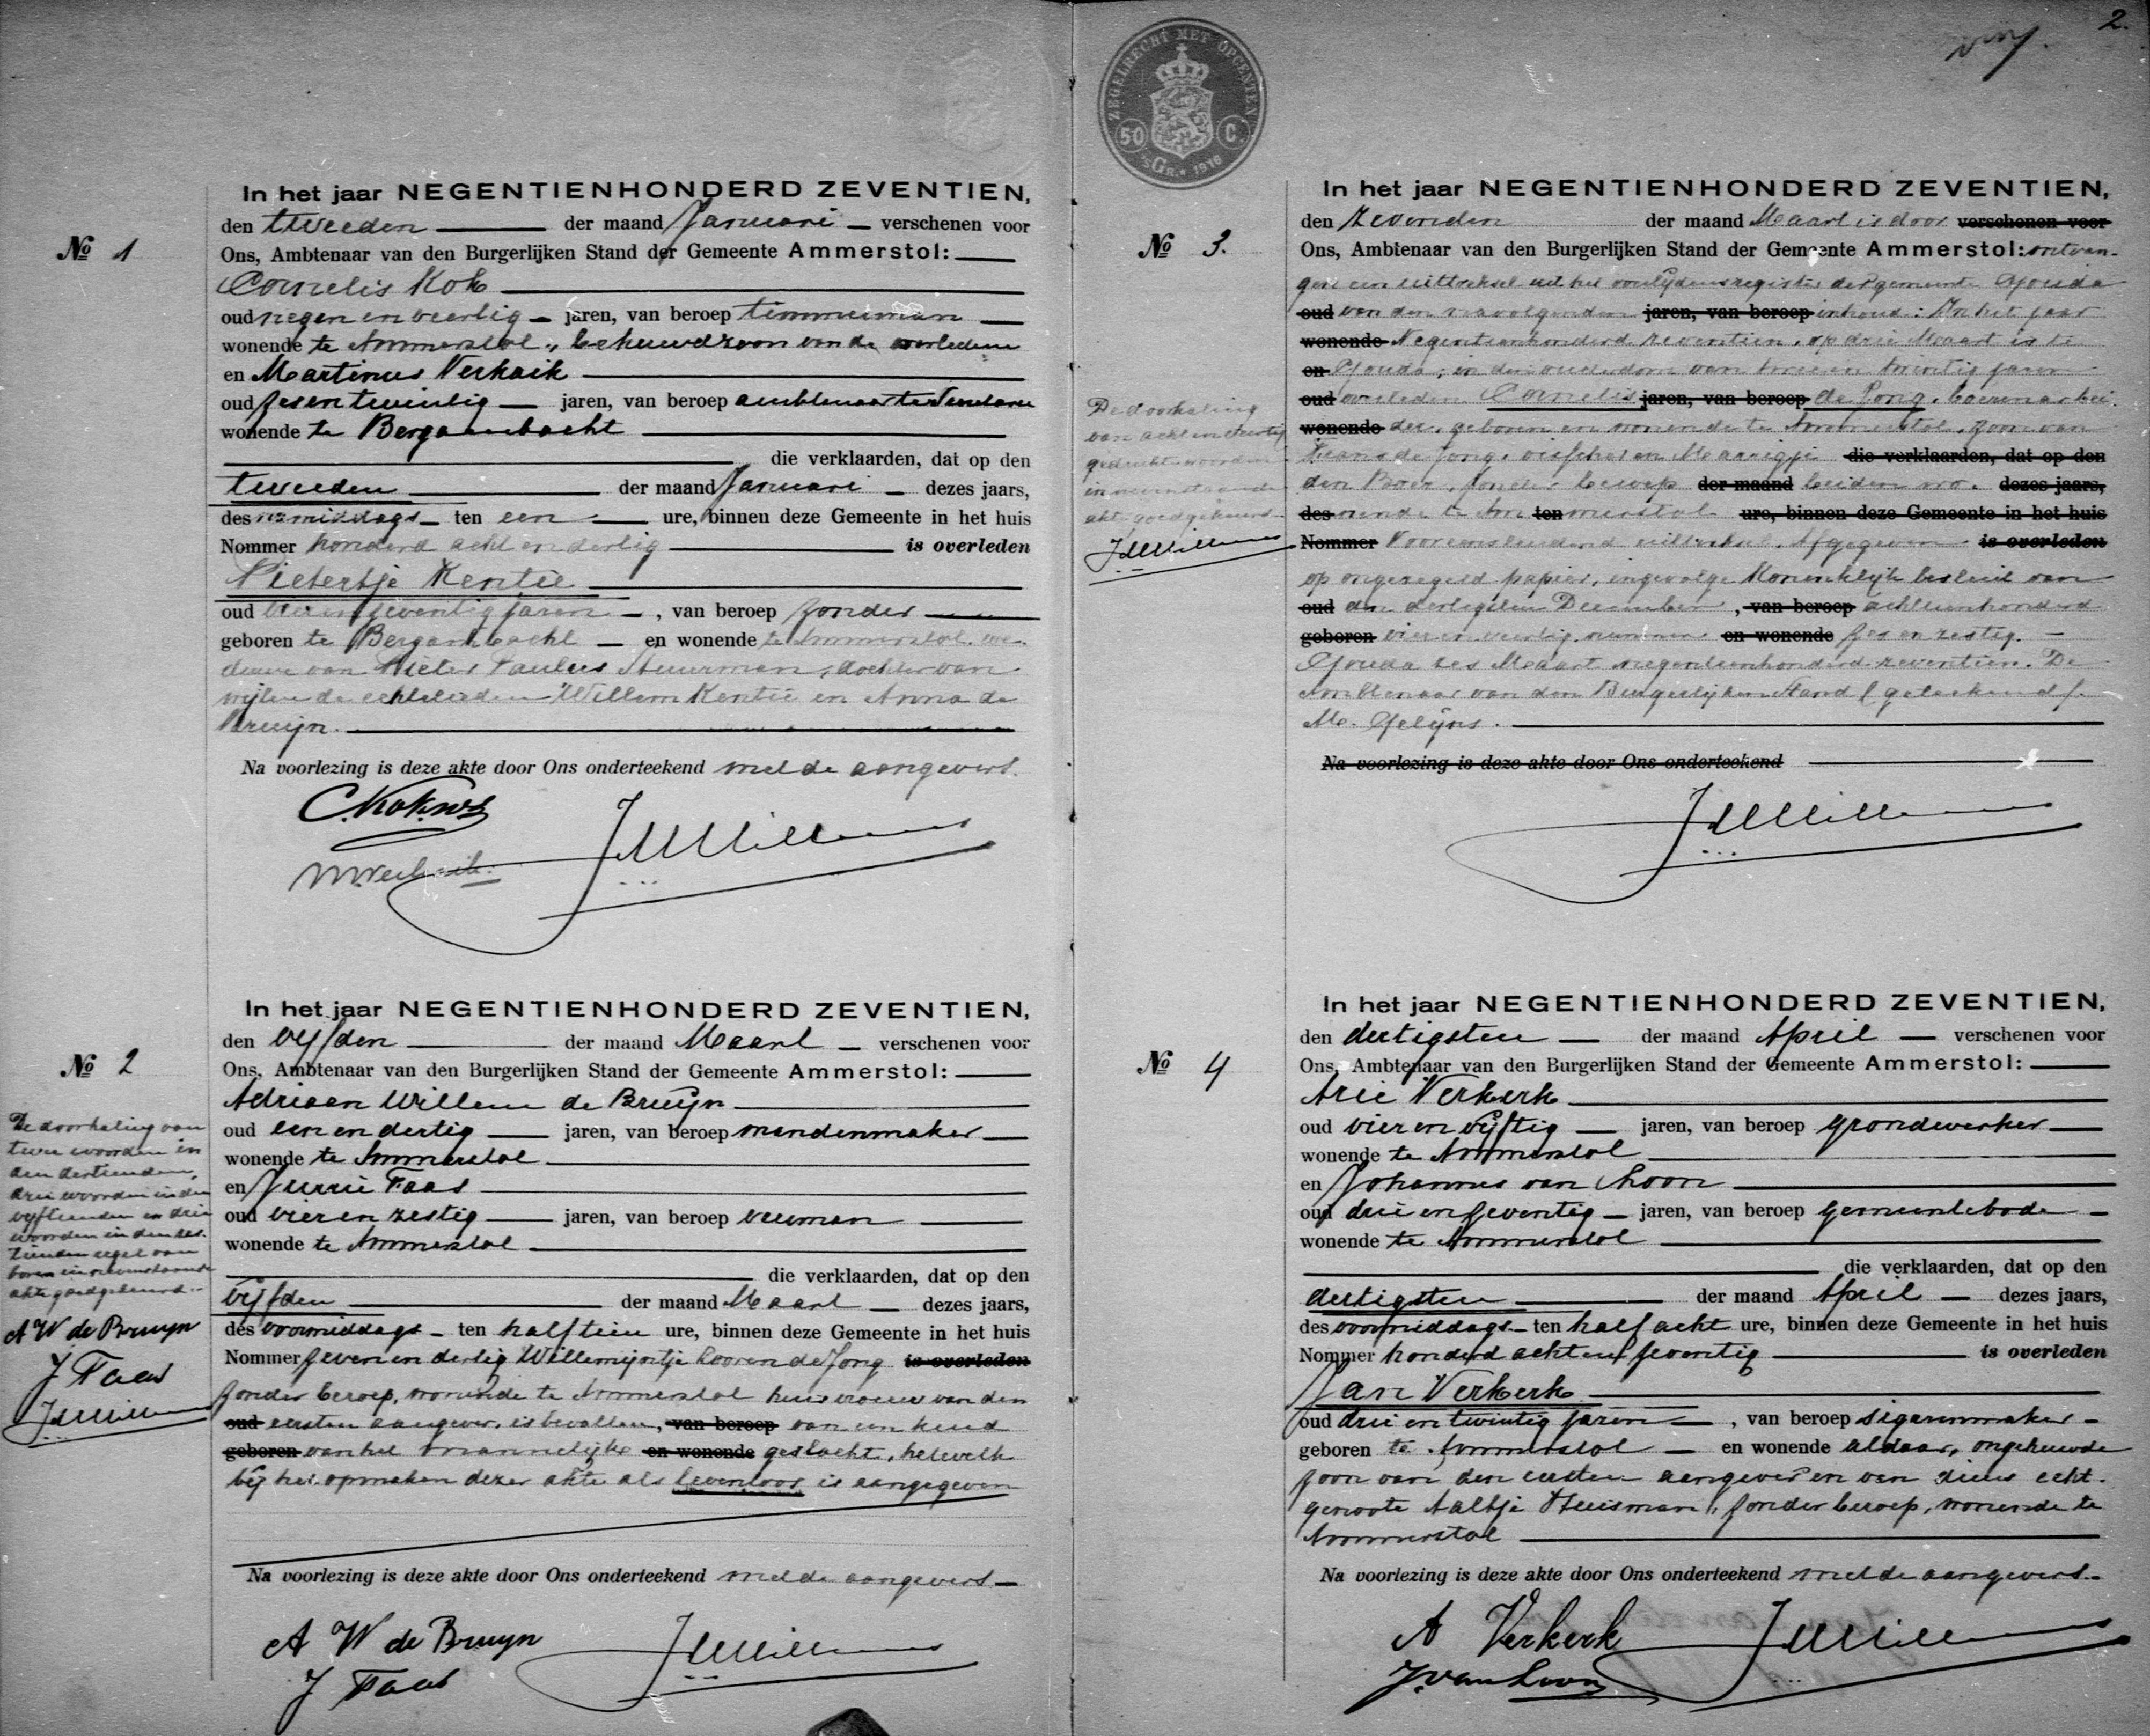 2.
ZEGELRECHT MET OPCENTEN
50 C
'sGR. 1916
No 1
In het jaar NEGENTIENHONDERD ZEVENTIEN,
den tweeden der maand Januari verschenen voor
Ons, Ambtenaar van den Burgerlijken Stand der Gemeente Ammerstol:
Cornelis Kok
oud negen en veertig jaren, van beroep timmerman
wonende te Ammerstol, behuwdzoon van de overledene
en Martinus Verkaik
oud zes en twintig jaren, van beroep ambtenaar ter secretarie
wonende te Bergambacht
die verklaarden, dat op den
tweeden der maand Januari dezes jaars,
des namiddags ten een ure, binnen deze Gemeente in het huis
Nommer honderd acht en dertig is overleden
Pietertje Kentie
oud vier en zeventig jaren, van beroep zonder
geboren te Bergambacht en wonende te Ammerstol, we-
duwe van Pieter Paulus Stuurman, dochter van
wijlen de echtelieden Willem Kentie en Anna de
Bruijn.
Na voorlezing is deze akte door Ons onderteekend met de aangevers.
C. Kok wz
M. Verkaik.
No 2
In het jaar NEGENTIENHONDERD ZEVENTIEN,
den vijfden der maand Maart verschenen voor
Ons, Ambtenaar van den Burgerlijken Stand der Gemeente Ammerstol:
Adriaan Willem de Bruijn
oud een en dertig jaren, van beroep mandenmaker
wonende te Ammerstol
en Jurrie Faas
oud vier en zestig jaren, van beroep veerman
wonende te Ammerstol
die verklaarden, dat op den
vijfden der maand Maart dezes jaars,
des voormiddags ten half tien ure, binnen deze Gemeente in het huis
Nommer zeven en dertig Willemijntje Cooren de Jong is overleden
zonder beroep, wonende te Ammerstol huisvrouw van den
oud eersten aangever, is bevallen, van beroep van een kind
geboren van het mannelijke en wonende geslacht, hetwelk
bij het opmaken dezer akte als levenloos is aangegeven
Na voorlezing is deze akte door Ons onderteekend met de aangevers.
A W de Bruyn
J Faas
De doorhaling van
twee woorden in
den dertienden,
drie woorden in den
vijftienden en drie
woorden in den zes-
tienden regel van
boven in nevenstaande
akte goedgekeurd.
A W de Bruyn
J Faas
No 3.
In het jaar NEGENTIENHONDERD ZEVENTIEN,
den zevenden der maand Maart is door verschenen voor
Ons, Ambtenaar van den Burgerlijken Stand der Gemeente Ammerstol: ontvan-
gen een uittreksel uit het overlijdensregister der gemeente Gouda
oud van den navolgenden jaren, van beroep inhoud: In het jaar
wonende Negentienhonderd zeventien, op drie Maart is te
en Gouda, in den ouderdom van twee en twintig jaren
oud overleden Cornelis jaren, van beroep de Jong, boerenarbei-
wonende der, geboren en wonende te Ammerstol, zoon van
de Jong, visscher en Maarigje die verklaarden, dat op den
den Boer, zonder beroep der maand beiden wo- dezes jaars,
des nende te Am ten merstol ure, binnen deze Gemeente in het huis
Nommer Voorenstaand uittreksel afgegeven is overleden
op ongezegeld papier, ingevolge Koninklijk besluit van
oud den dertigsten December, van beroep achttienhonderd
geboren vier en veertig nummer en wonende zes en zestig.
Gouda zes Maart negentienhonderd zeventien. De
Ambtenaar van den Burgerlijken Stand (geteekend)
M. Gelijns.
Na voorlezing is deze akte door Ons onderteekend
De doorhaling
van acht en dertig
gedrukte woorden
in nevenstaande
akte goedgekeurd.
No 4
In het jaar NEGENTIENHONDERD ZEVENTIEN,
den dertigsten der maand April verschenen voor
Ons, Ambtenaar van den Burgerlijken Stand der Gemeente Ammerstol:
Arie Verkerk
oud vier en vijftig jaren, van beroep grondwerker
wonende te Ammerstol
en Johannes van Loon
oud drie en zeventig jaren, van beroep gemeentebode
wonende te Ammerstol
die verklaarden, dat op den
dertigsten der maand April dezes jaars,
des voormiddags ten half acht ure, binnen deze Gemeente in het huis
Nommer honderd acht en zeventig is overleden
Jan Verkerk
oud drie en twintig jaren, van beroep sigarenmaker
geboren te Ammerstol en wonende aldaar, ongehuwde
zoon van den eersten aangever en van diens echt-
genoote Aaltje Huisman, zonder beroep, wonende te
Ammerstol
Na voorlezing is deze akte door Ons onderteekend met de aangevers.
A Verkerk
J. van Loon